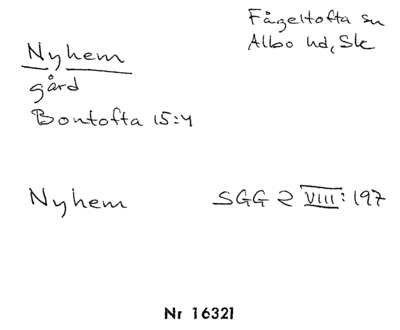 Fågeltofta sn
Albo hd, Sk
Nyhem
gård
Bontofta 15:4
Nyhem SGG 2 VIII: 197
Nr 16321